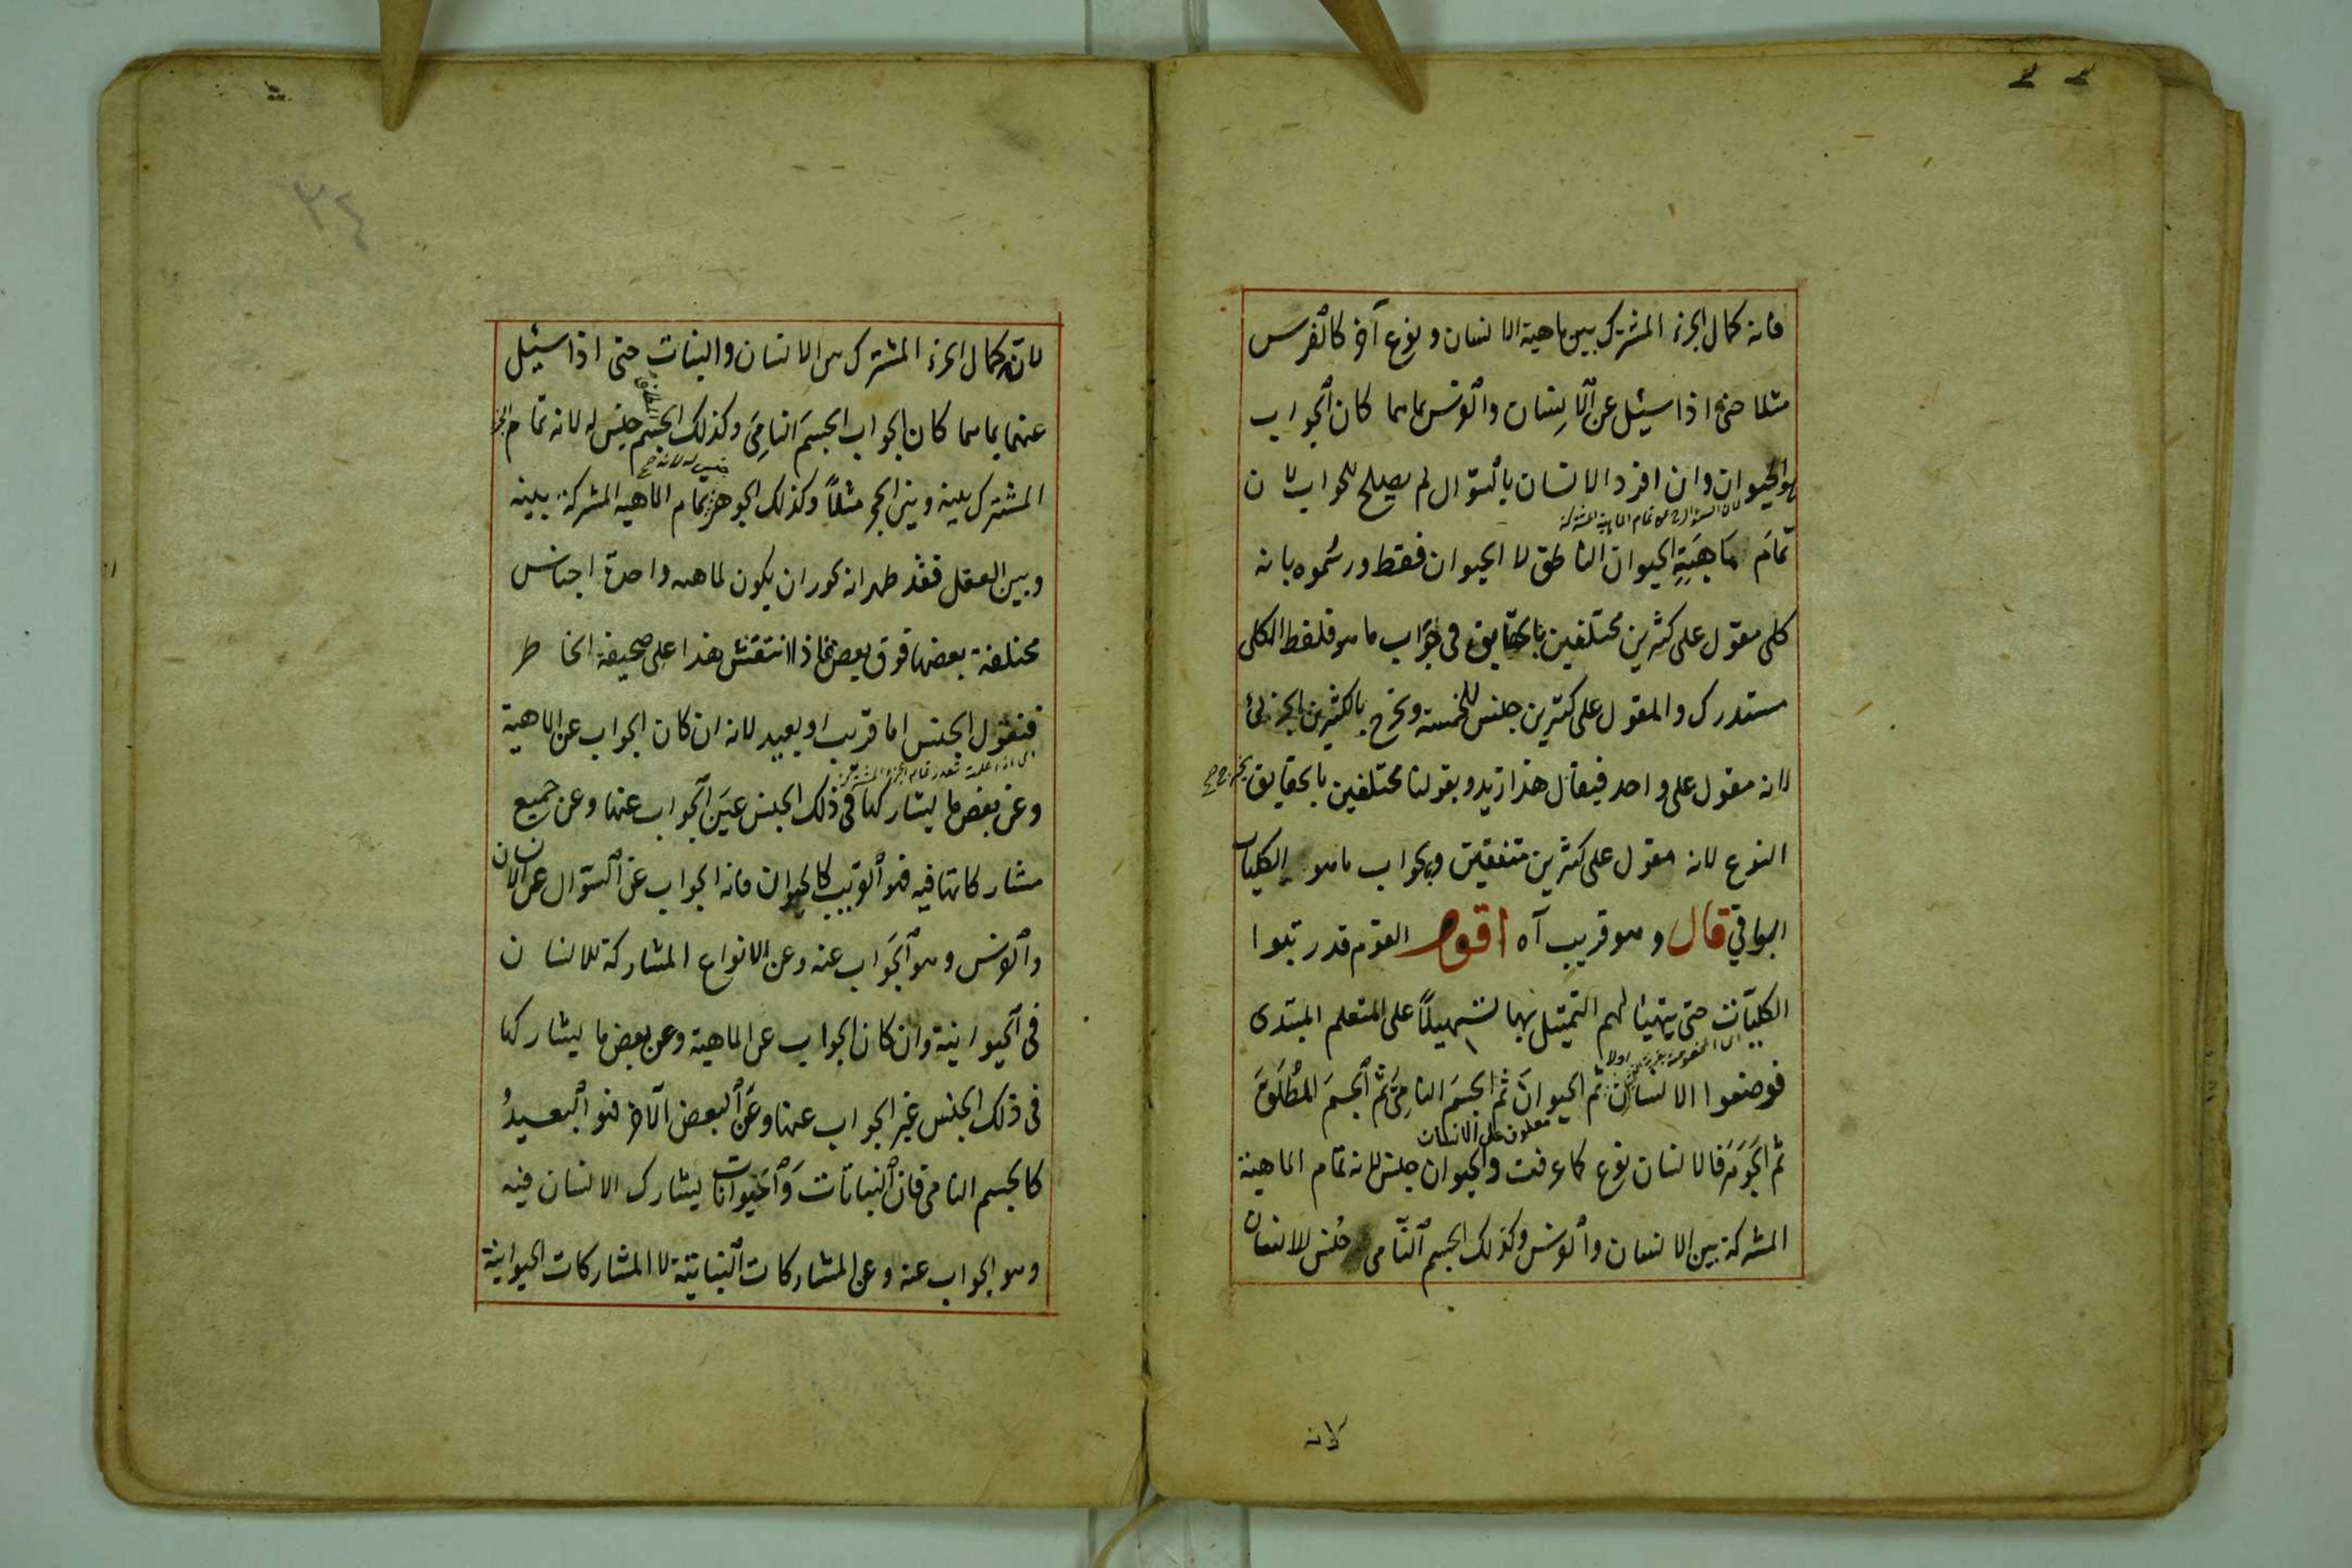 فانه كمال الجزء المشترك بين ماهية الانسان و نوع آخر كالفرس
مثلا حتى اذا سئيل عن الانسان والفرس بما هما كان الجواب
هو الحيوان وان افرد الانسان بالسؤال لم يصلح للجواب لان
لان السؤال ح عن تمام الماهية المشتركة
تمام مَاهِيَةِ الحيوان الناطق لا الحيوان فقط ورسموه بانه
كلى مقول على كثرين مختلفين بالحقايق فى جواب ما هو فلفظ الكلى
مستدرك والمقول على كثيرين جنس للخمسة ويخرج بالكثيرين الجزئى
لانه مقول على واحد فيقال هذا زيد وبقولنا مختلفين بالحقايق يخرج
النوع لانه مقول على كثرين متفقين وبجواب ما هو الكليات
البواقي قال وهو قريب آه اقول القوم قد رتبوا
الكليات حتى يتهيأ لهم التمثيل بها تسهيلاً على المتعلم المبتدى
فوضعوا الانسان ثم الحيوانَ ثم الجسمَ النامِىَ ثم الجسمَ المُطْلَقَ
ثم الجَوهَرَ فالانسان نوع كما عرفت والحيوان جنس لانه تمام الماهية
المشركة بين الانسان والفرس وكذلك الجسم النّامى جنس للانسان
لانه
٣٤
لانّه كمال الجزء المشترك بين الانسان والنبات حتى اذا سئيل
عنهما بما هما كان الجواب الجسمَ النامِىَ وكذلك الجسم جنس له لانه تمام الجزء
المشترك بينه وبين الحجر مثلاً وكذلك الجوهر تمام الماهيه المشركة بينه
وبين العقل فقد ظهر انه يجوز ان يكون لماهيه واحدة اجناس
مختلفة بعضها فوق بعض فاذا انتقش هذا على صحيفة الخاطر
فنقول الجنس اما قريب او بعيد لانه ان كان الجواب عن الماهية
وعن بعض ما يشاركها فى ذلك الجنس عينَ الجواب عنها وعن جميع
مشاركاتها فيه فهو القريب كالحيوان فانه الجواب عن السؤال عن الانسان
والفرس وهو الجَواب عنه وعن الانواع المشاركة للانسان
فى الحيوانية وان كان الجواب عن الماهية وعن بعض ما يشاركها
فى ذلك الجنس غير الجواب عنها وعَن البعض الآخر فهو البعيدُ
كالجسم النامى فان النباتات وَالحَيوانات يشارك الانسان فيه
وهو الجواب عنه وعن المشاركات النباتية لا المشاركات الحيوانية